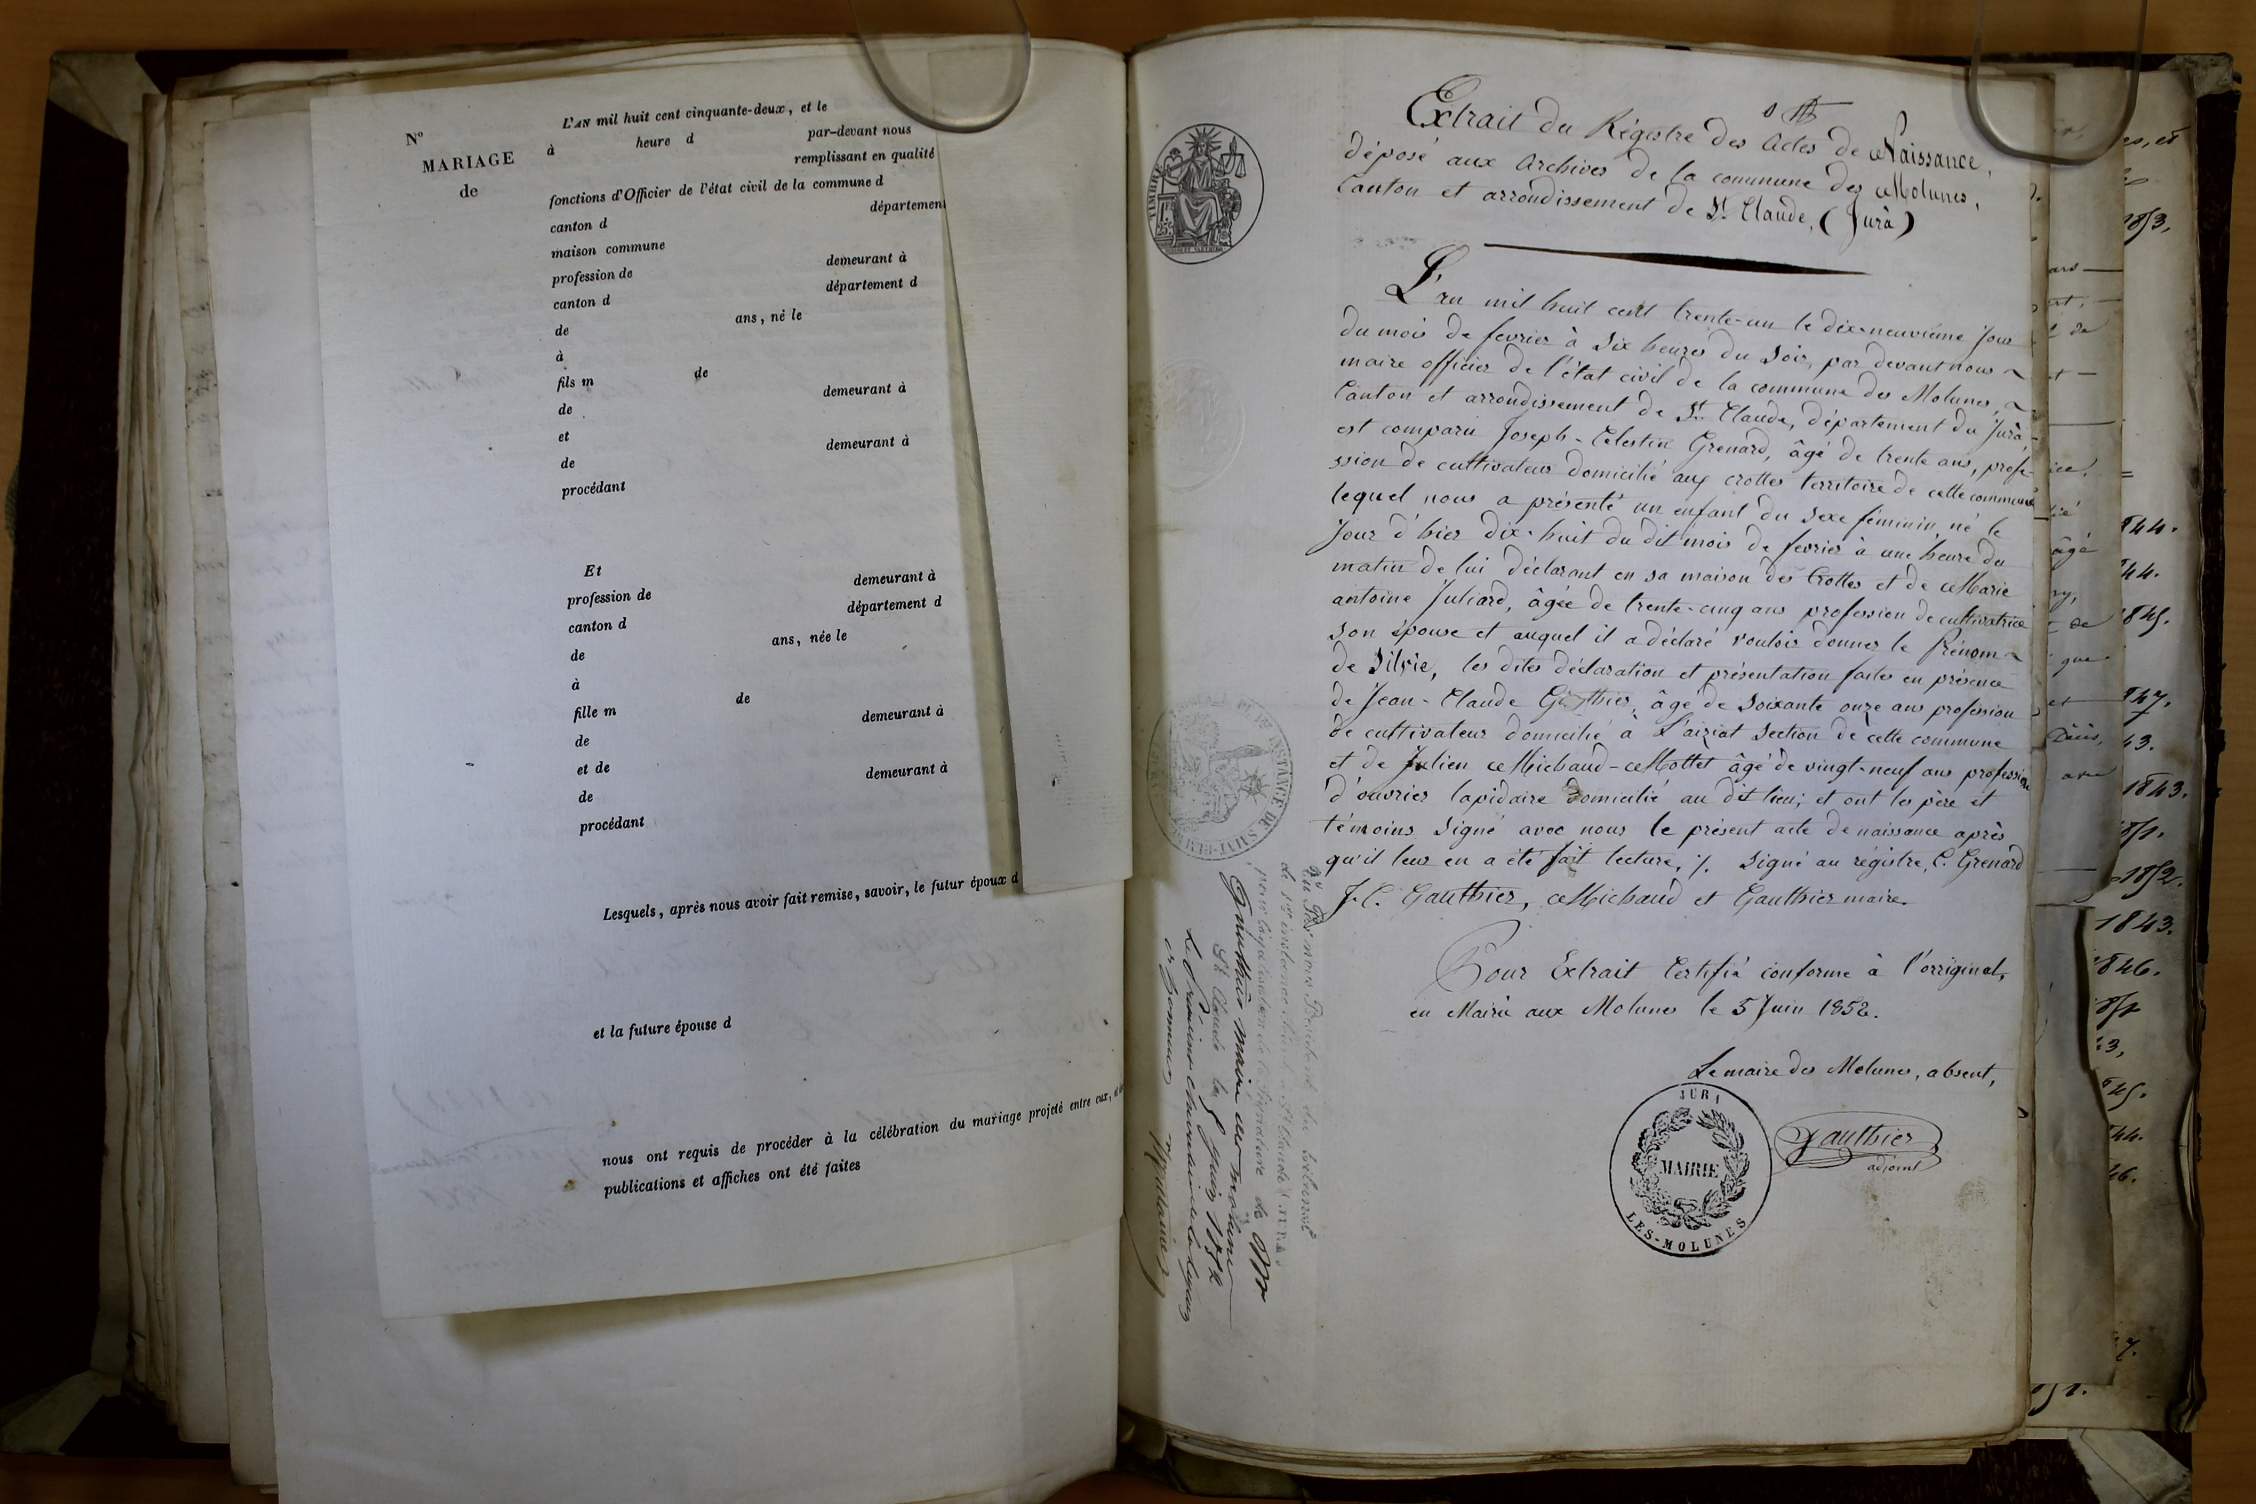 N°
MARIAGE
de
L'AN mil huit cent cinquante-deux, et le
à heure d par-devant nous
remplissant en qualité
fonctions d'Officier de l'état civil de la commune d
canton d département
maison commune
profession de demeurant à
canton d département d
de ans, né le
à
fils m de
de demeurant à
et
de demeurant à
procédant
Et
profession de demeurant à
canton d département d
de ans, née le
à
fille m de
de demeurant à
et de
de demeurant à
procédant
Lesquels, après nous avoir fait remise, savoir, le futur époux d
et la future épouse d
nous ont requis de procéder à la célébration du mariage projeté entre eux,
publications et affiches ont été faites
Extrait du Régistre des Actes de Naissance,
déposé aux archives de la commune des Molunes,
Canton et arrondissement de St Claude, (Jura)
L'an mil huit cent trente-un le dix-neuvième Jour
du mois de fevrier à six heures du soir, par devant nous
maire officier de l'état civil de la commune des Molunes,
Canton et arrondissement de St Claude, département du Jura
est comparu Joseph-Celestin Grenard, âgé de trente ans, profe-
ssion de cultivateur domicilié aux crottes territoire de cette commune
lequel nous a présenté un enfant du sexe féminin né le
Jour d'hier dix-huit du dit mois de fevrier à une heure du
matin de lui déclarant en sa maison des Crottes et de Marie
antoine Juliard, âgée de trente-cinq ans profession de cultivatrice
son épouse et auquel il a déclaré vouloir donner le Prénom
de Silvie, les dites déclaration et présentation faites en présence
de Jean-Claude Gauthier, âgé de soixante onze ans profession
de cultivateur domicilié à L'aiziat section de cette commune
et de Julien Michaud-Mottet âgé de vingt-neuf ans profession
d'ouvrier lapidaire domicilié au dit lieu; et ont les père et
témoins signé avec nous le présent acte de naissance après
qu'il leur en a été fait lecture, /. signé au régistre, C. Grenard
J. C. Gauthier, Michaud et Gauthier maire.
Pour Extrait Certifié conforme à l'original,
en Mairie aux Molunes le 5 Juin 1852.
Le maire des Molunes, absent,
Gauthier
adjoint
JURA
MAIRIE
LES-MOLUNES
TIMBRE
Vu Par nous Président du tribunal
de 1re instance séant à St Claude (JURA)
pour légalisation de la signature de M
Gauthier maire des molunes
St Claude le 5 juin 1852